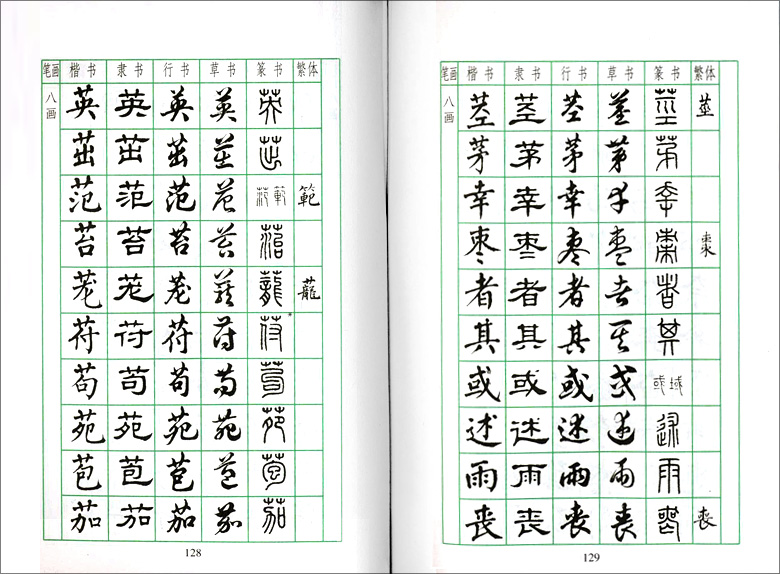 笔画 楷书 隶书 行书 草书 篆书 繁体
八画 英 英 英 英 英
茁 茁 茁 茁 茁
范 范 范 范 范 範 範
苔 苔 苔 苔 苔
茏 茏 茏 蘢 蘢 蘢
苻 苻 苻 苻 苻
苟 苟 苟 苟 苟
苑 苑 苑 苑 苑
苞 苞 苞 苞 苞
茄 茄 茄 茄 茄
128
笔画 楷书 隶书 行书 草书 篆书 繁体
八画 茎 茎 茎 莖 莖 莖
茅 茅 茅 茅 茅
幸 幸 幸 幸 幸
枣 枣 枣 枣 棗 棗
者 者 者 者 者
其 其 其 其 其
或 或 或 或 或 域
述 述 述 述 述
雨 雨 雨 雨 雨
丧 丧 丧 丧 喪 喪
129